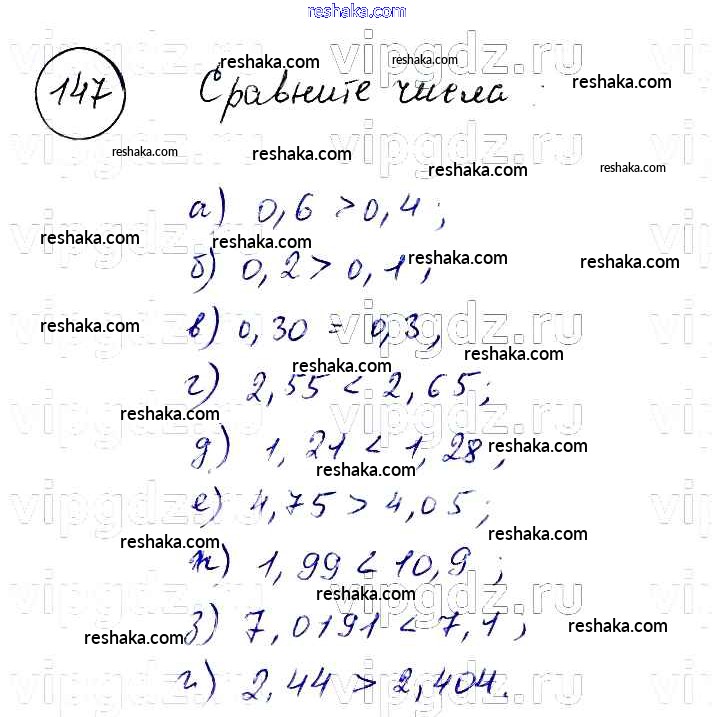 reshaka.com
147 Сравните числа
а) 0,6 > 0,4;
б) 0,2 > 0,1;
в) 0,30 = 0,3,
г) 2,55 < 2,65;
д) 1,21 < 1,28,
е) 4,75 > 4,05;
ж) 1,99 < 10,9;
з) 7,0191 < 7,1,
г) 2,44 > 2,404.
reshaka.com
vipgdz.ru